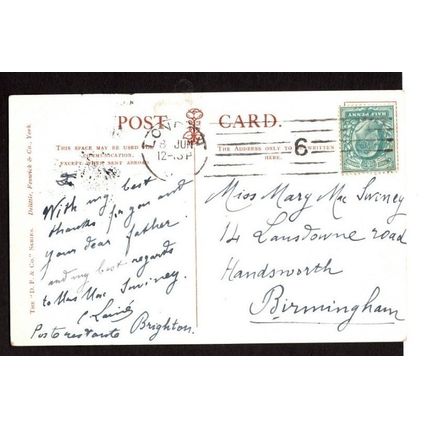 POST CARD.
THIS SPACE MAY BE USED
COMMUNICATION.
EXCEPT WHEN SENT ABROAD.
THE ADDRESS ONLY TO WRITTEN
HERE.
8 JUN
12-15 P
6
HALF PENNY
With my best
thanks for you and
your dear father.
and my best regards
to Miss Mac Swiney.
Poste restante Brighton.
Miss Mary Mac Swiney
14 Lansdowne road
Handsworth
Birmingham
THE "D. F. & Co." SERIES.
Delittle, Fenwick & Co., York.